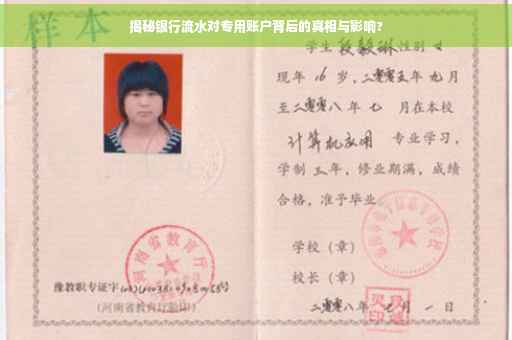 揭秘银行流水对专用账户背后的真相与影响?
样本
学生段毅琳性别女
现年16岁,二零零五年九月
至二零零八年七 月在本校
计算机应用 专业学习,
学制三年,修业期满,成绩
合格,准予毕业。
学校(章)
校长(章)
河南省教育厅
豫教职专证字
(河南省教育厅验印)
二零零八年七月一日